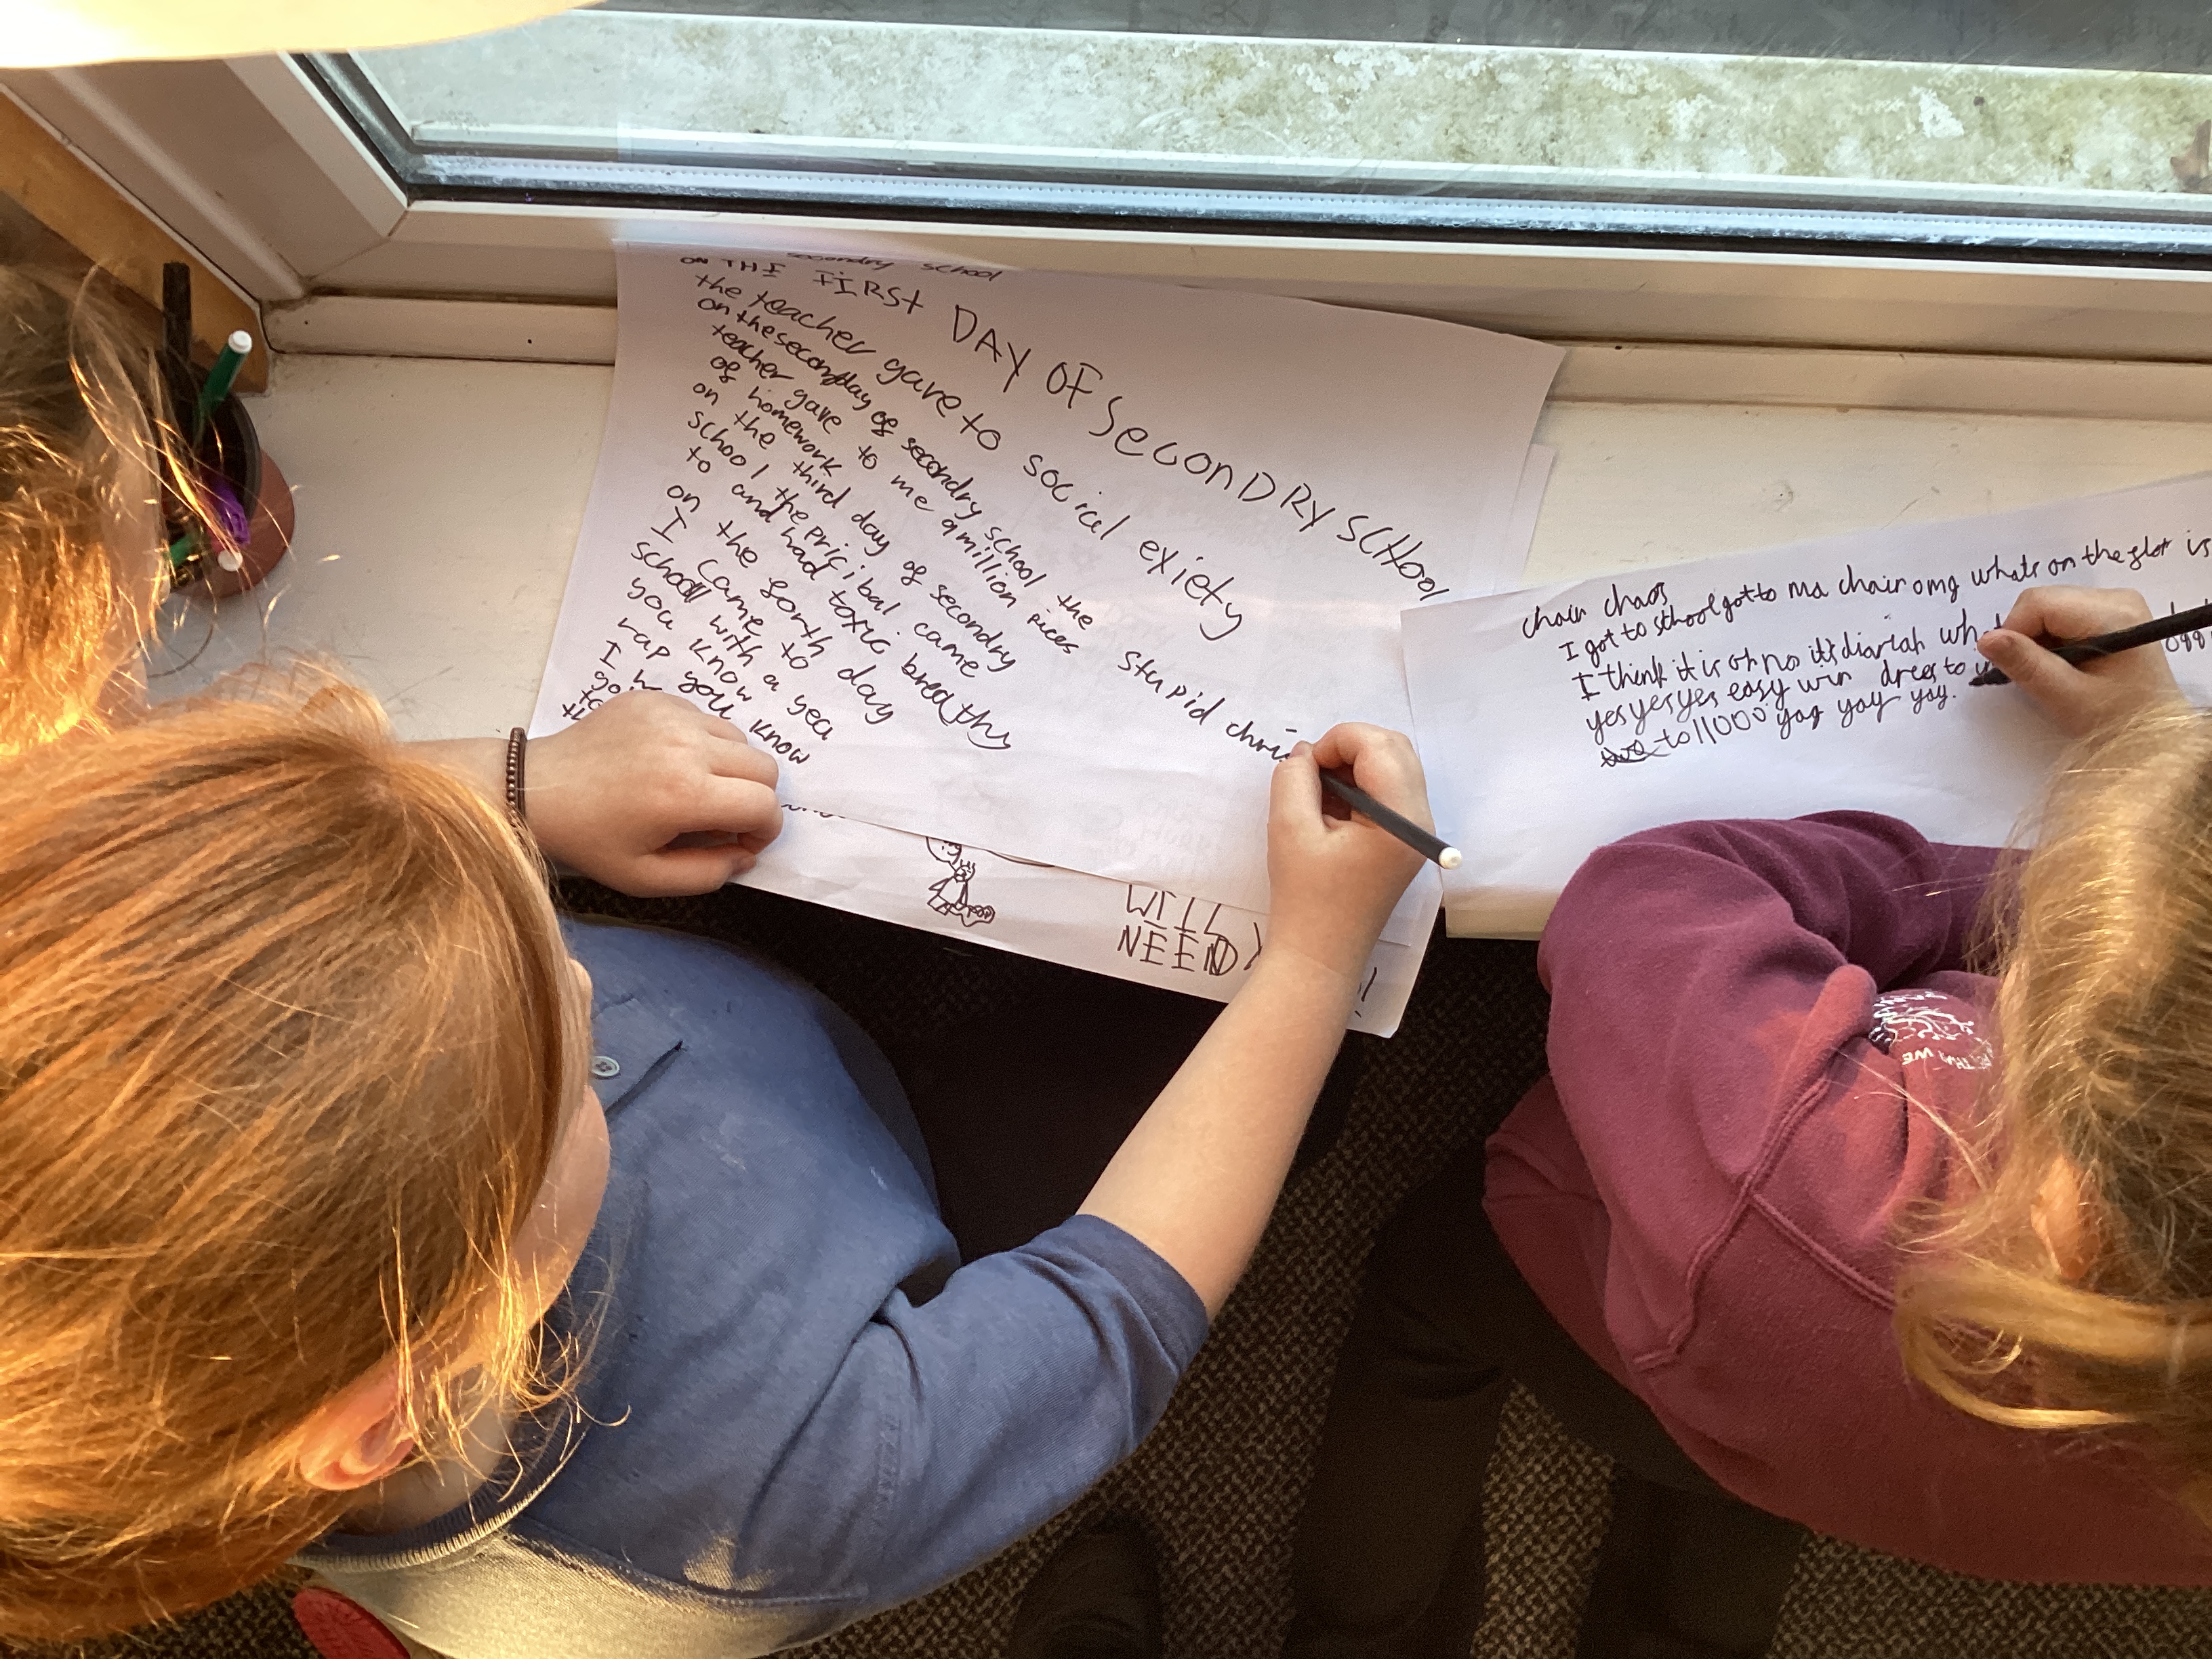 secondry school
ON THI FIRST DAY OF SeconDRY SCHool
the teacher gave to social exiety stupid chri
on the seconday of secondry school the
teacher gave to me a million pices
of homework
on the third day of secondry
school the pricibal came
to and had toxic breathy
on the forth day
I came to
school with a yea
you know
rap you know
I
WILL
NEEND
chair chaos
I got to school got to ma chair omg whats on the flor is
I think it is oh no its diariah
yes yes yes easy win drees to
to 11000 yay yay yay.
WE